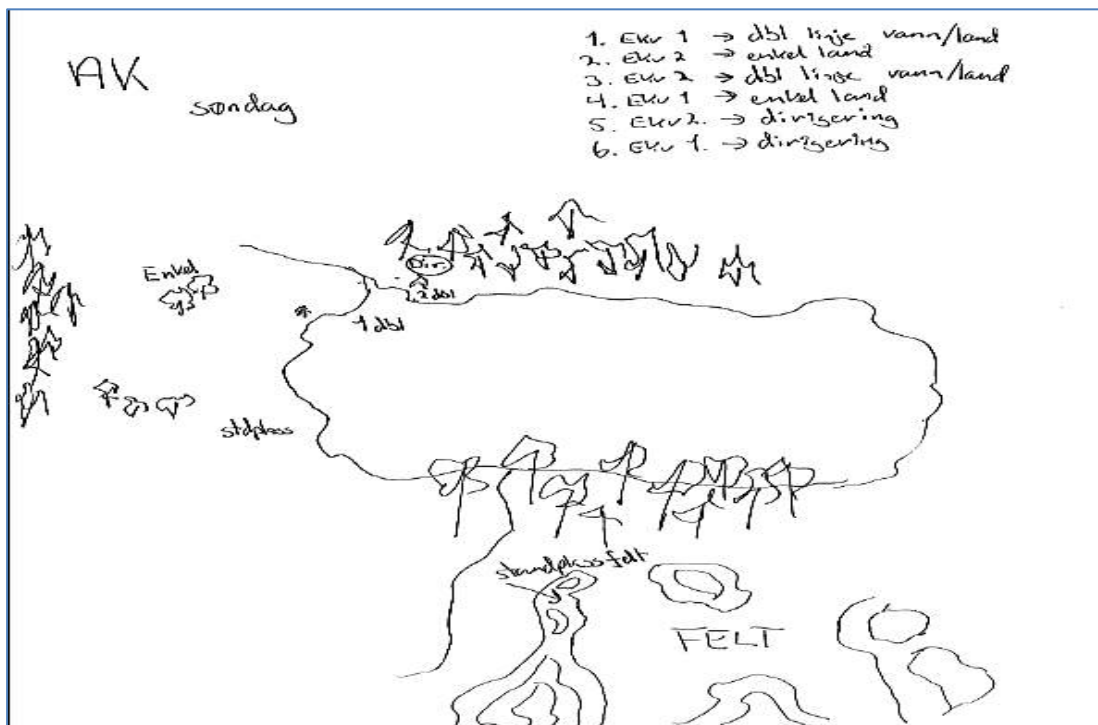 AK
søndag
1. Ekv 1 → dbl linje vann/land
2. Ekv 2 → enkel land
3. Ekv 2 → dbl linje vann/land
4. Ekv 1 → enkel land
5. Ekv 2. → dirigering
6. Ekv 1. → dirigering
Enkel
Dir.
2 dbl
1 dbl
stdplass
standplass felt
FELT